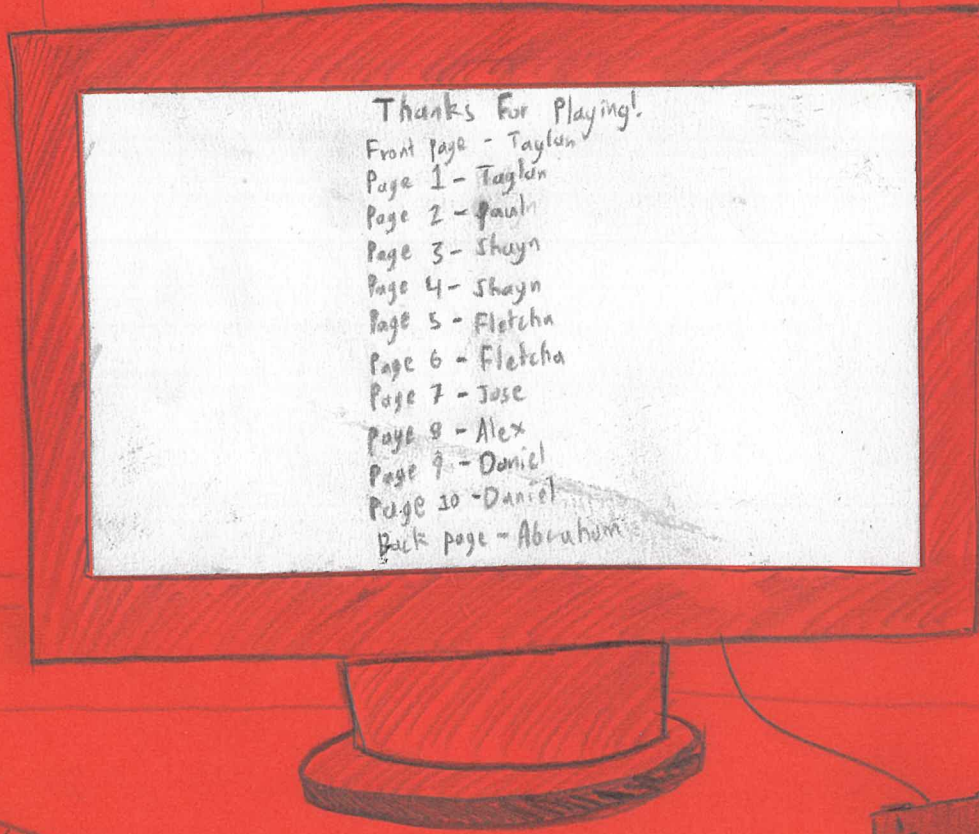 Thanks For Playing!
Front page - Taylan
Page 1 - Taylan
Page 2 -
Page 3 - Shayn
Page 4 - Shayn
Page 5 - Fletcha
Page 6 - Fletcha
Page 7 - Jose
Page 8 - Alex
Page 9 - Daniel
Page 10 - Daniel
Back page - Abraham